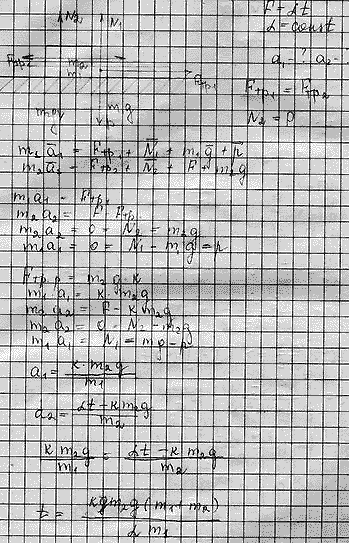 F = αt
α = const
N₂ N₁
a₁ - ? a₂ -
Fтр₂
m₂
m₁
Fтр₁
Fтр₁ = Fтр₂
N₂ = P
m₁g
P
m₁ā₁ = Fтр₁ + N̄₁ + m₁ḡ + p̄
m₂ā₂ = Fтр₂ + N̄₂ + F + m₂g
m₁a₁ = Fтр₁
m₂a₂ = F - Fтр
m₂a₂ = 0 = N₂ - m₂g
m₁a₁ = 0 = N₁ - m₁g - p
Fтр = m₂g·k
m₁a₁ = k·m₂g
m₂a₂ = F - k m₂g
m₂a₂ = 0 = N₂ - m₂g
m₁a₁ = N₁ = mg - p
a₁ = k·m₂g / m₁
a₂ = αt - k m₂g / m₂
k m₂g / m₁ = αt - k m₂g / m₂
t = kgm₂g (m₁ + m₂) / α m₁